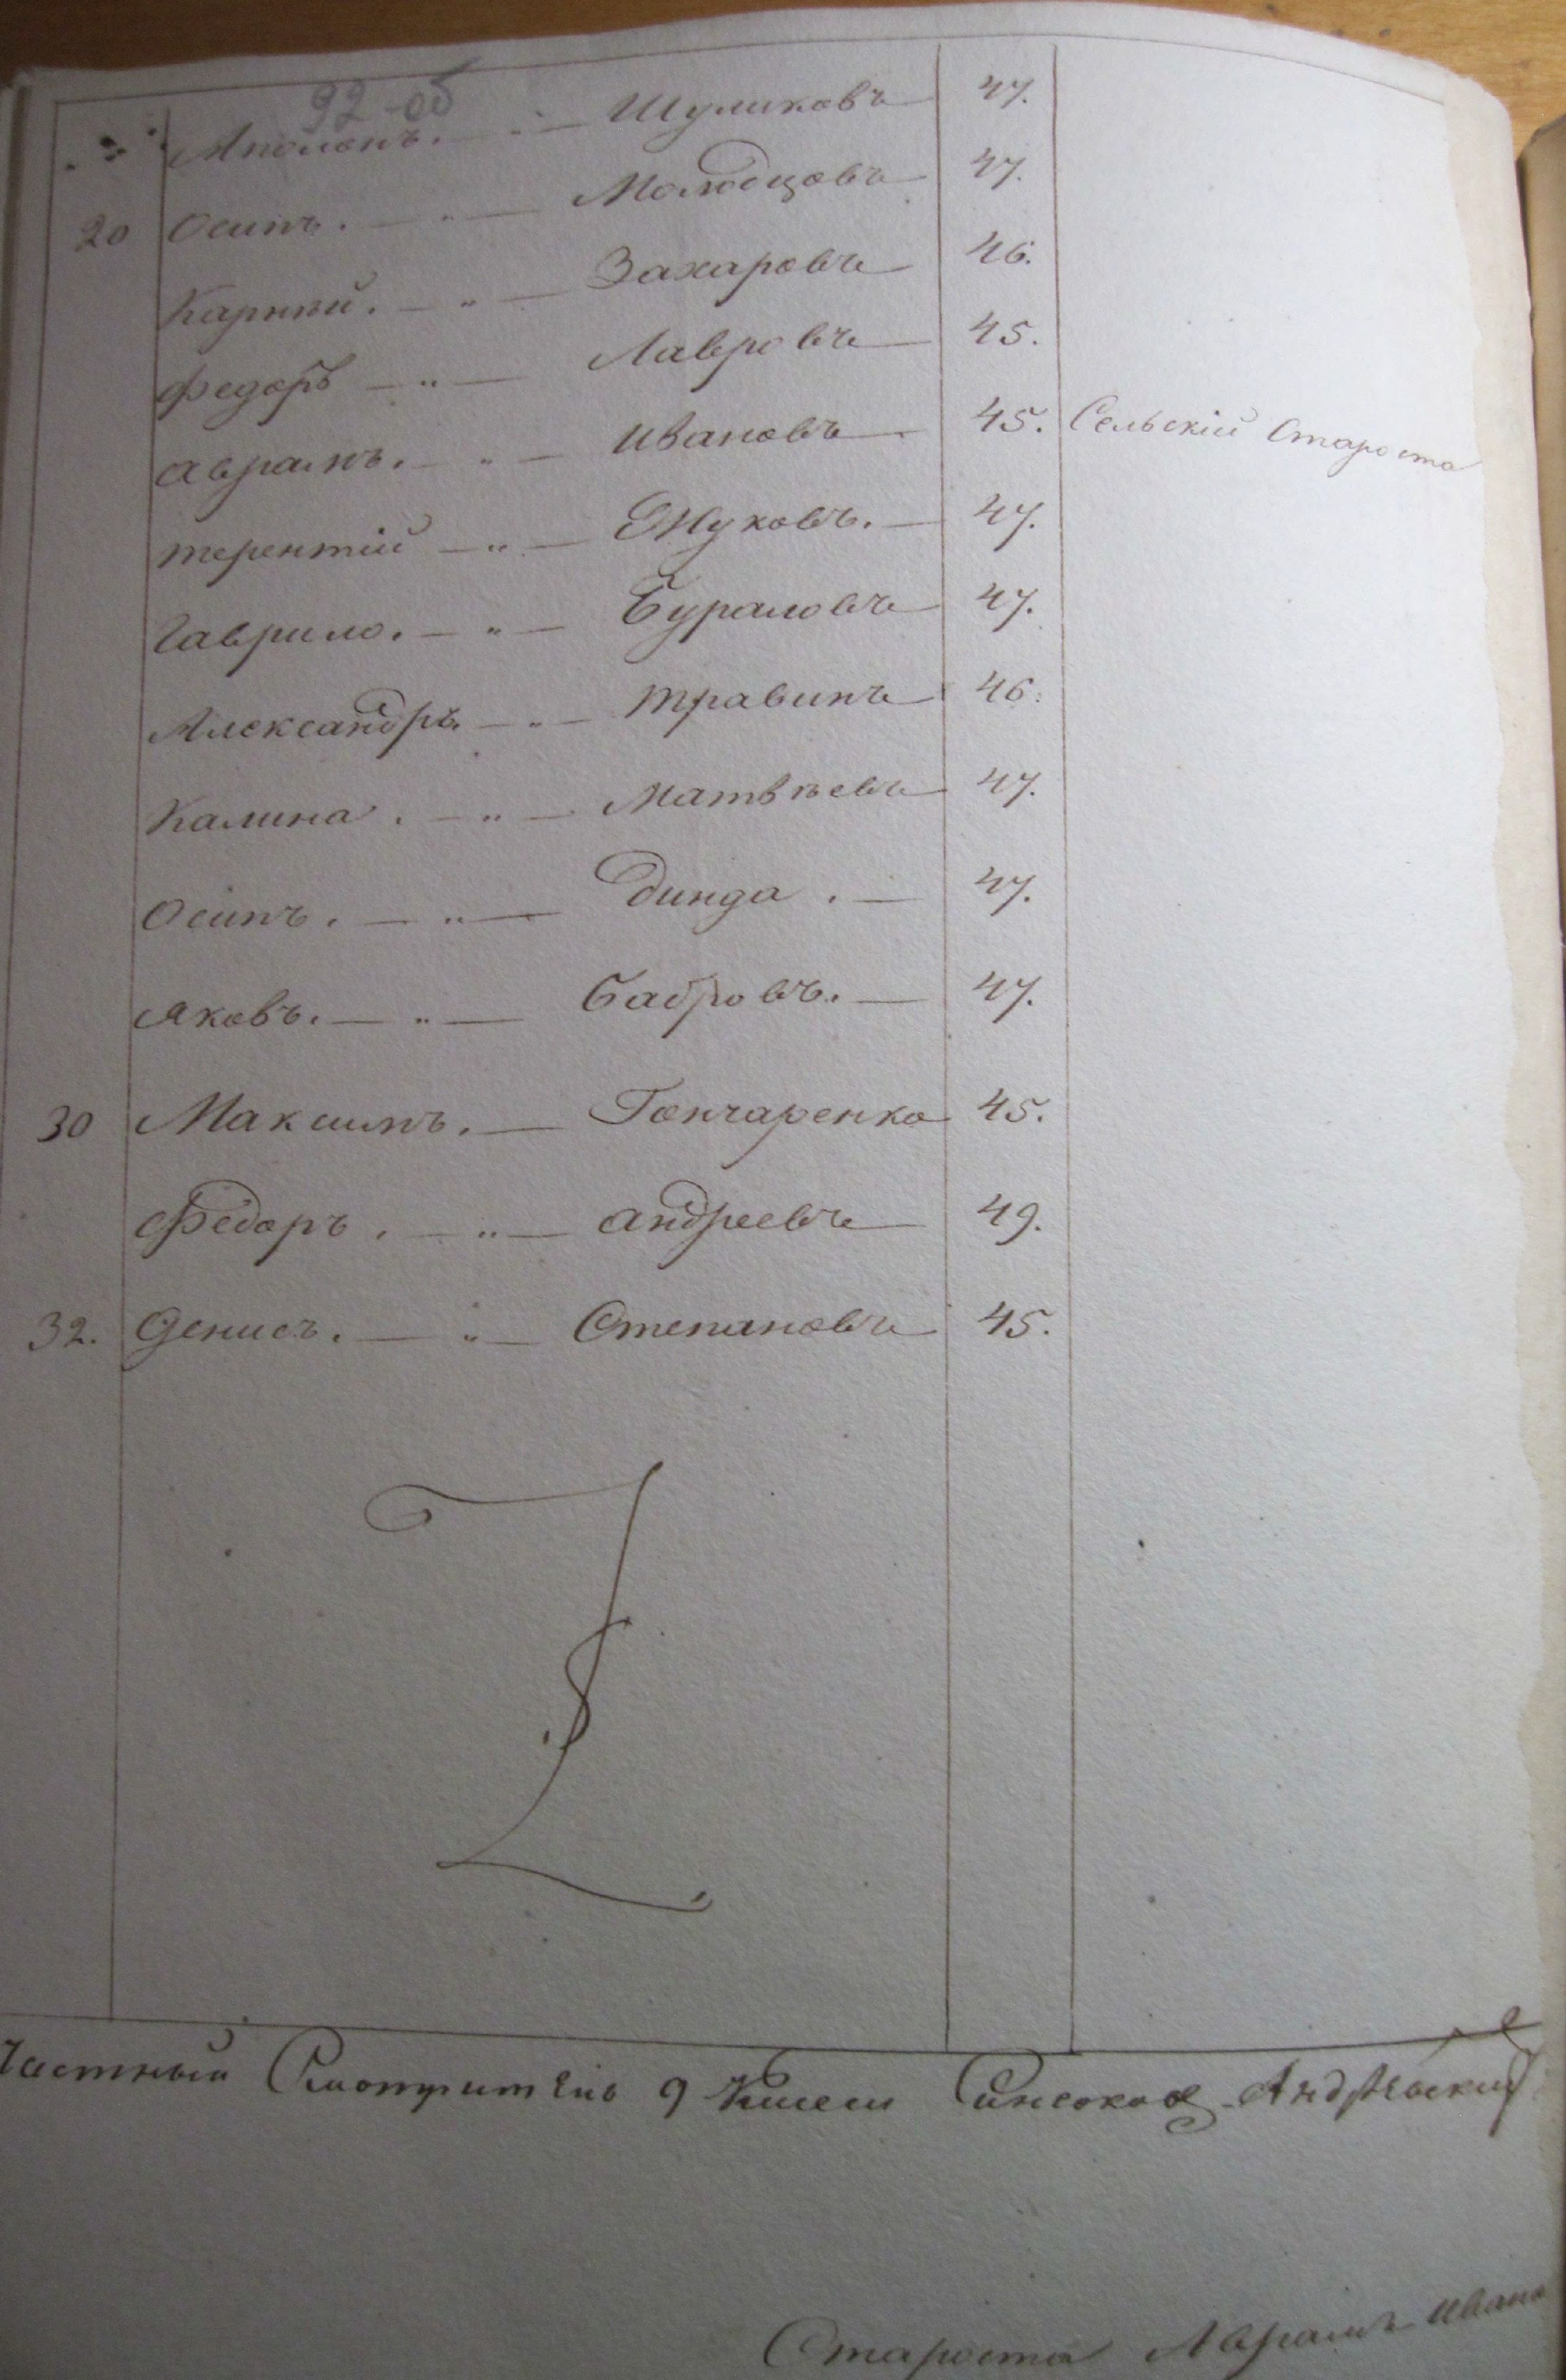 92-об
Аполонъ. — „ — Шуликовъ 47.
20 Осипъ. — „ — Молодцовъ 47.
Карпъй. — „ — Захаровъ 46.
Федоръ — „ — Лавровъ 45.
Аврамъ. — „ — Ивановъ 45. Сельскій Староста
Терентій — „ — Жуковъ. — 47.
Гаврило. — „ — Бураловъ 47.
Александръ — „ — Травинъ 46.
Калина. — „ — Матвѣевъ 47.
Осипъ. — „ — Динда. — 47.
Яковъ. — „ — Бобровъ. — 47.
30 Максимъ. — Гончаренко 45.
Федоръ. — „ — Андреевъ 49.
32. Денисъ. — „ — Степановъ 45.
Частный Смотритель 9 Андріевскій
Староста Аврамъ Ивано